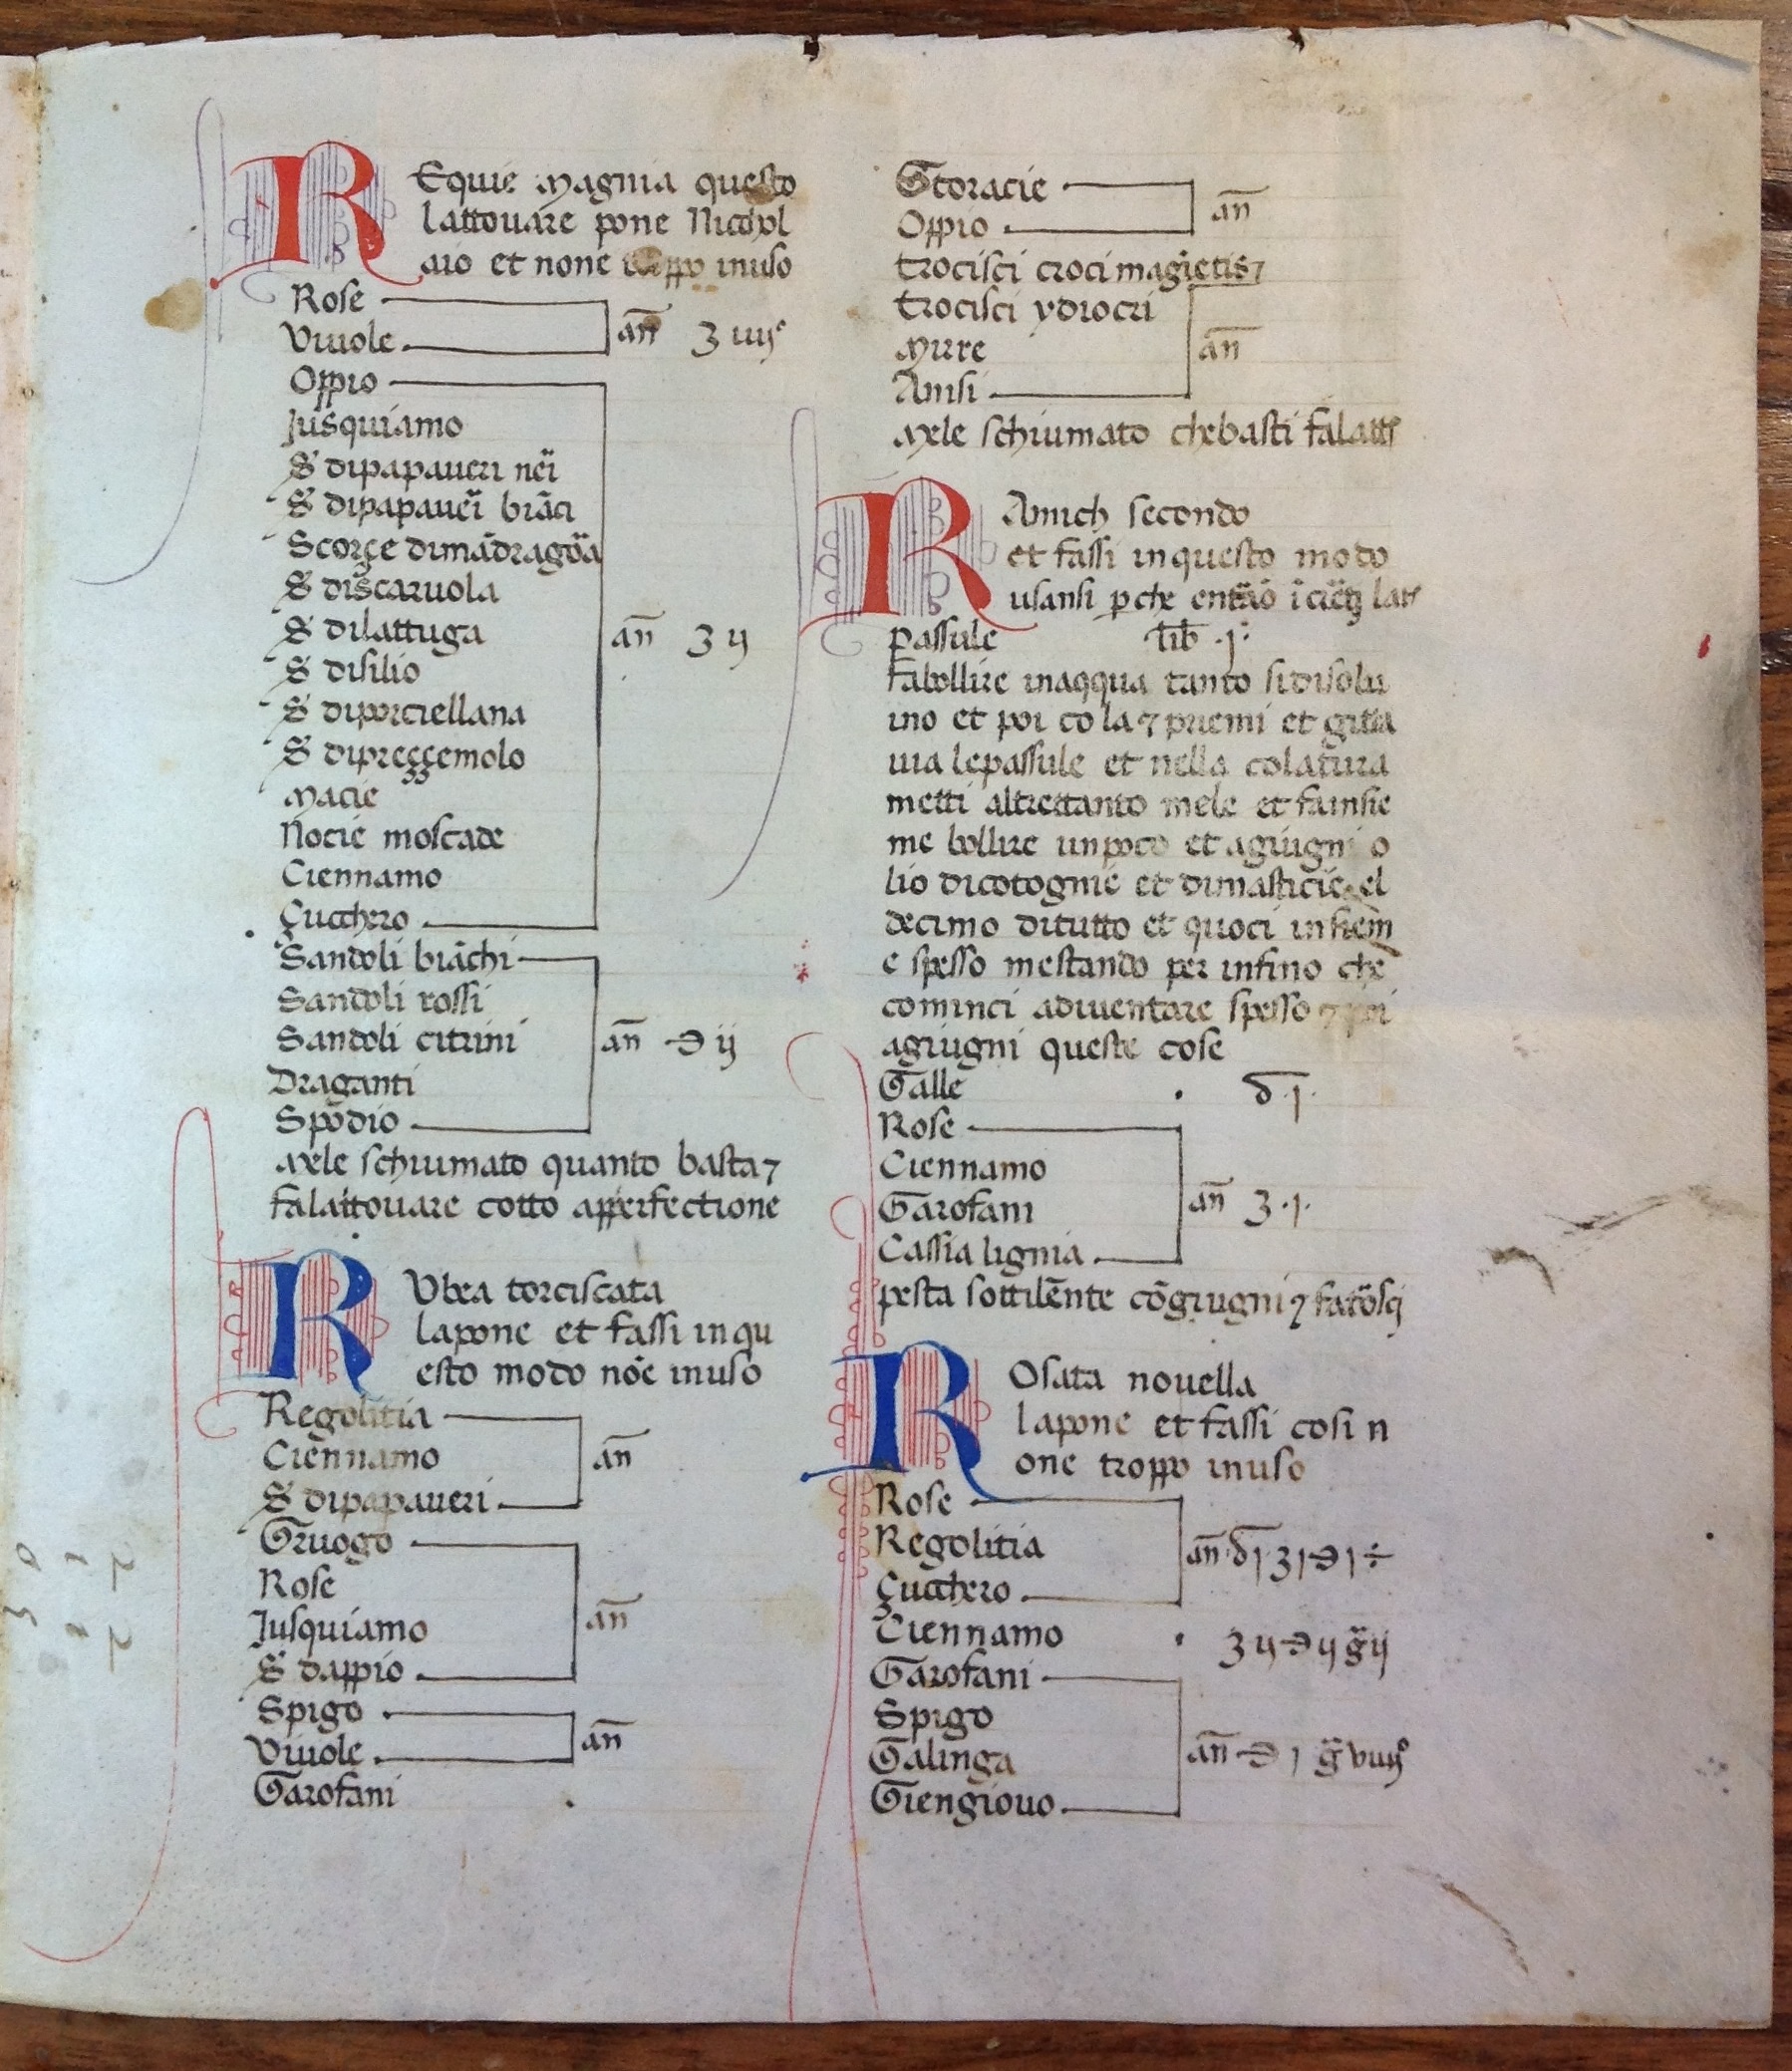 REquie magnia questo
lattouare pone Nicchol
aio et none troppo inuso
Rose
Viuole
an̄ ʒ iiij°
Oppio
Jusquiamo
S dipapaueri ne͂i
S dipapaue͂i biāci
Scorçe dimādrago͂a
S discaruola
S dilattuga
S disilio
S diporciellana
S dipreççemolo
Macie
Nocie moscade
Ciennamo
Çucchero
an̄ ʒ ij
Sandoli biāchi
Sandoli rossi
Sandoli citrini
Draganti
Spōdio
an̄ ℈ ij
Mele schiumato quanto basta ⁊
falattouare cotto apperfectione
RVbea torciscata
lapone et fassi in qu
esto modo nōe inuso
Regolitia
Ciennamo
S dipapaueri
an̄
Gruogo
Rose
Jusquiamo
S dappio
an̄
Spigo
Viuole
an̄
Garofani
Storacie
Oppio
an̄
trocisci croci magietis ⁊
trocisci ydiocri
Mirre
Anisi
an̄
Mele schiumato chebasti falatt
RAmich secondo
et fassi inquesto modo
usansi ꝑche
passule lib̄ .j.
fabollire inaqqua tanto sidisolu
ino et poi cola ⁊ priemi et gitta
uia lepassule et nella colatura
metti altrettanto mele et fainsie
me bollire unpoco et agiugni o
lio dicotognie et dimasticie el
decimo ditutto et quoci insiem
e spesso mestando per infino che
cominci adiuentare spesso ⁊ poi
agiugni queste cose
Galle δ .j.
Rose
Ciennamo
Garofani
Cassia lignia
an̄ ʒ .j.
pesta sottilēnte cōgiugni ⁊ fatōsci
ROsata nouella
lapone et fassi cosi n
one troppo inuso
Rose
Regolitia
Çucchero
an̄ δ j ʒ j ℈ j ÷
Ciennamo ʒ ij ℈ ij g͂ ij
Garofani
Spigo
Galinga
Giengiouo
an̄ ℈ j g͂ viiij°